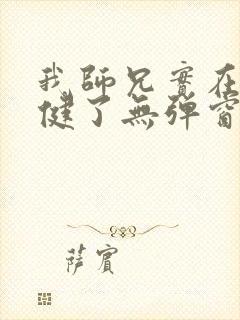 我師兄實在
健了無彈窗
薩賓